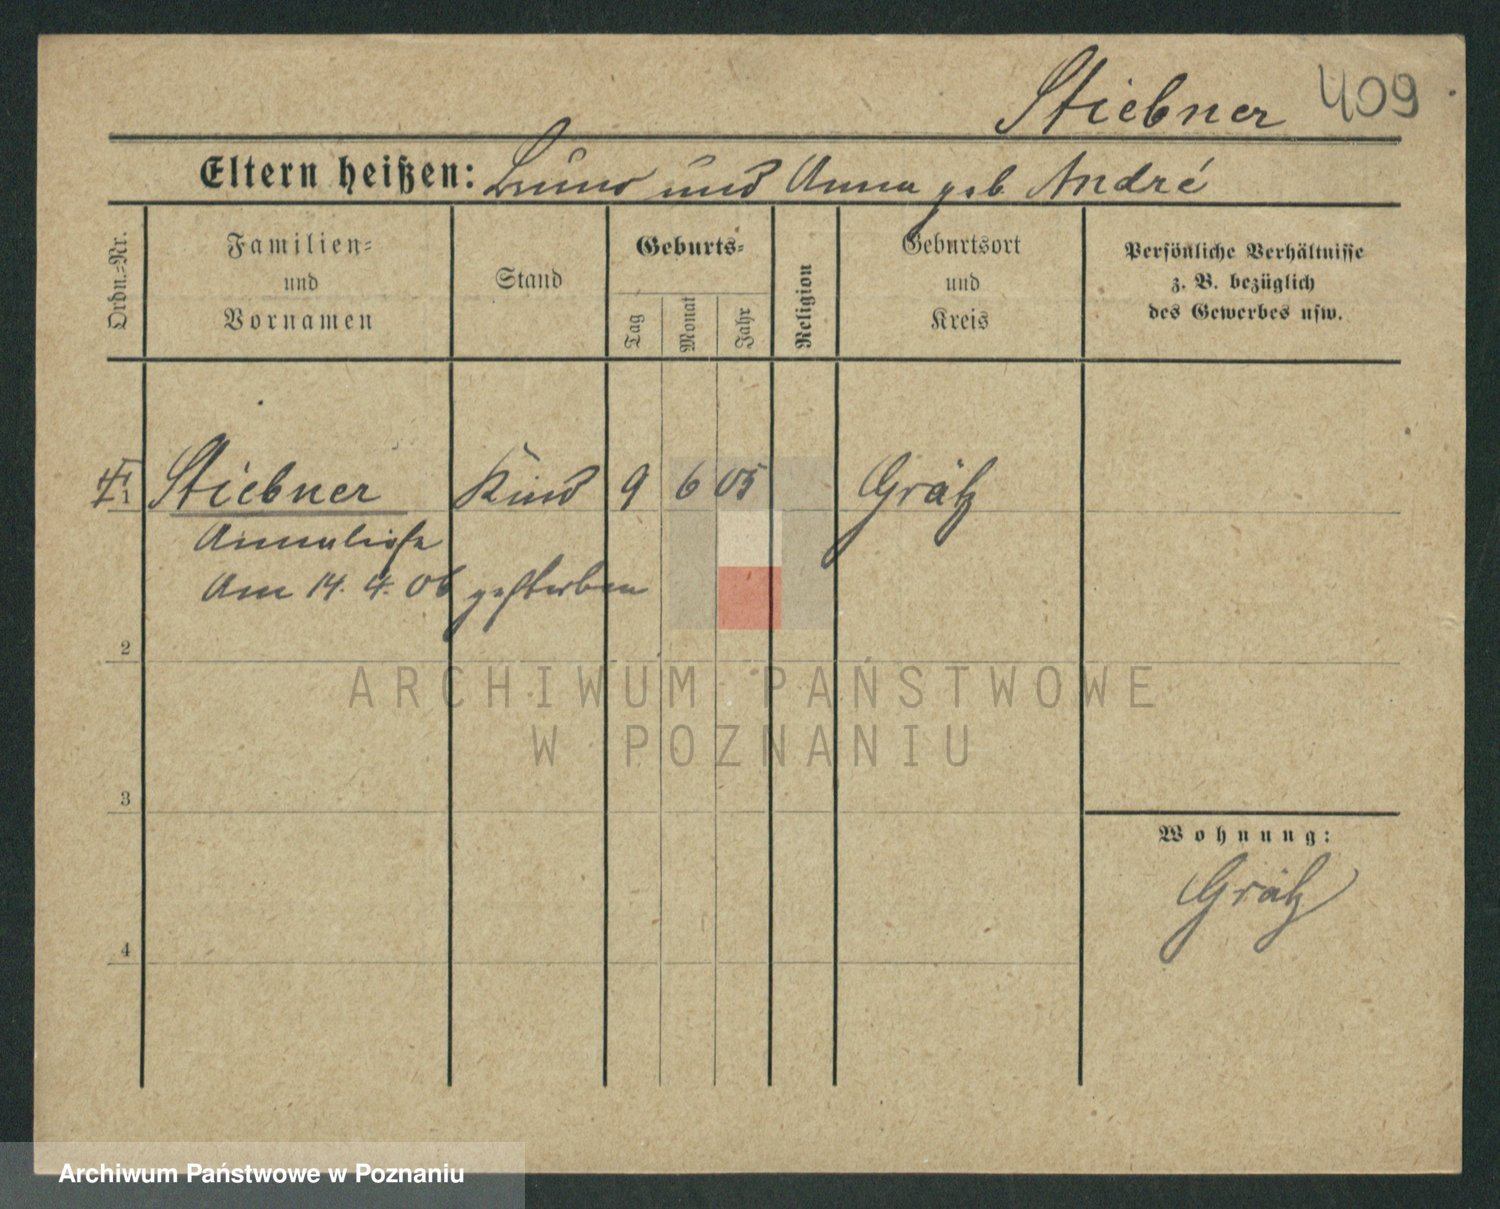 Stiebner 409
Eltern heißen: und Anna geb André
Ordn.=Nr.
Familien=
und
Vornamen
Stand
Geburts=
Tag
Monat
Jahr
Religion
Geburtsort
und
Kreis
Persönliche Verhältnisse
z. B. bezüglich
des Gewerbes usw.
1 Stiebner Kind 9 6 05 Grätz
Anneliese
Am 14. 4. 06 gestorben
2
ARCHIWUM PAŃSTWOWE
W POZNANIU
3
Wohnung:
Grätz
4
Archiwum Państwowe w Poznaniu